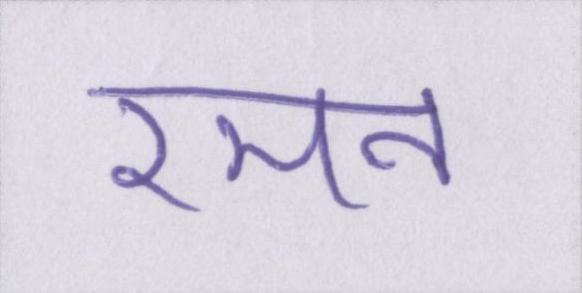 रमन